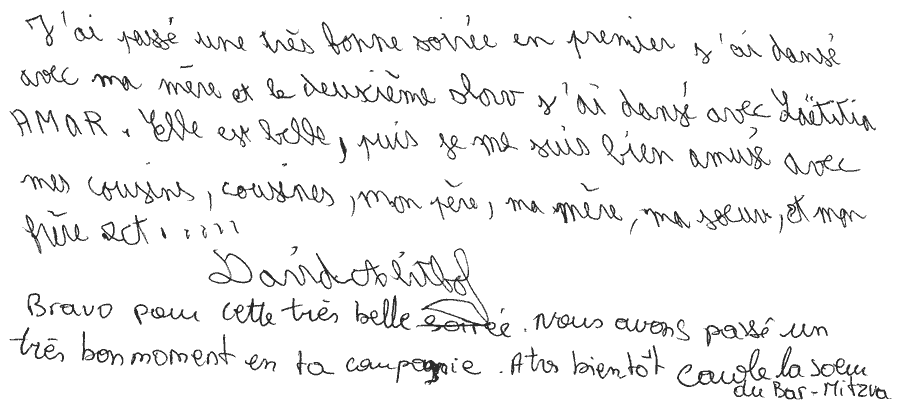 J'ai passé une très bonne soirée en premier j'ai dansé
avec ma mère et le deuxième slow j'ai dansé avec Laëtitia
AMAR. Elle est belle, puis je me suis bien amusé avec
mes cousins, cousines, mon père, ma mère, ma soeur, et mon
frère ect.....
David
Bravo pour cette très belle soirée. Nous avons passé un
très bon moment en ta compagnie. A très bientôt Carole la soeur
du Bar-Mitzva